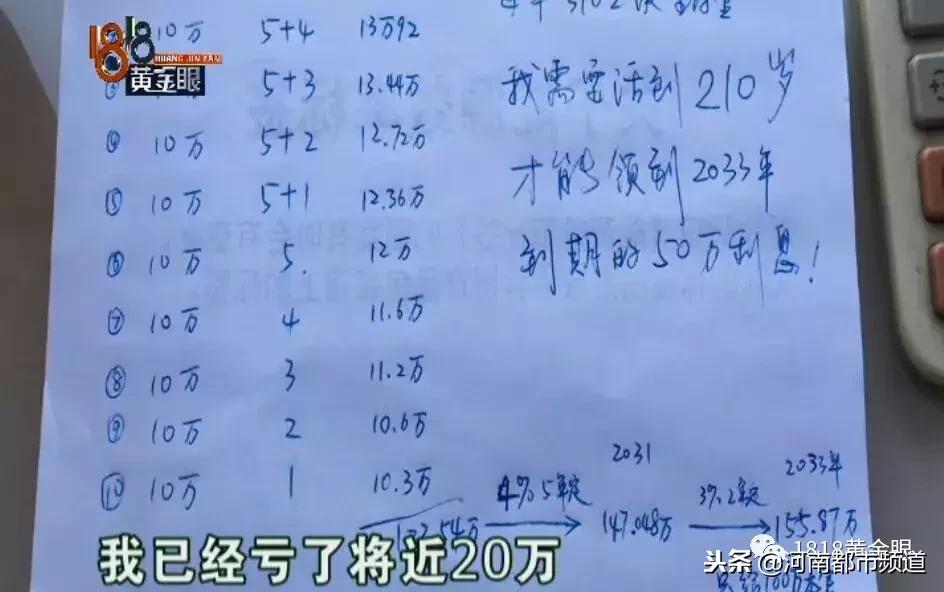 1818
HUANG JIN YAN
黄金眼
10万 5+4 13万92
10万 5+3 13.44万
④ 10万 5+2 12.72万
⑤ 10万 5+1 12.36万
⑥ 10万 5. 12万
⑦ 10万 4 11.6万
⑧ 10万 3 11.2万
⑨ 10万 2 10.6万
⑩ 10万 1 10.3万
我需要活到210岁
才能领到2033年
到期的50万利息!
2031 2033年
4% 5年定 147.048万 3% 2年定 155.87万
我已经亏了将近20万
1818黄金眼
头条 @河南都市频道